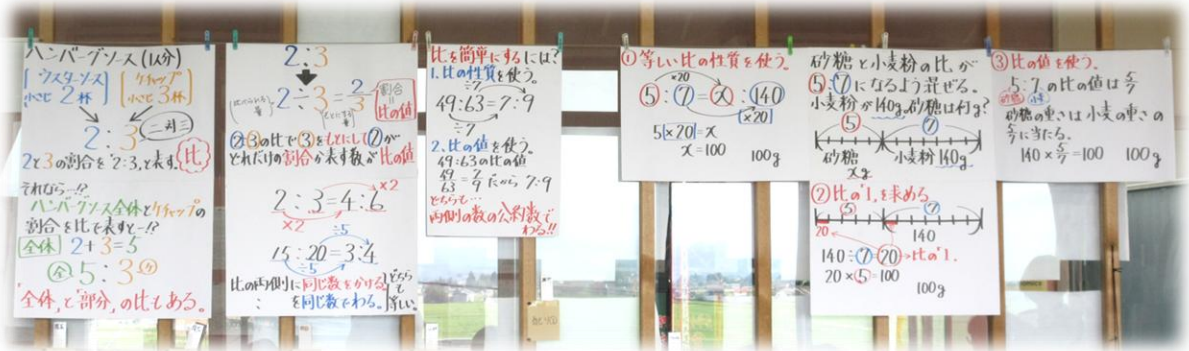 ハンバーグソース(1人分)
ウスターソース ケチャップ
小さじ2杯 小さじ3杯
2:3 二対三
2と3の割合を「2:3」と表す。比
それなら…!?
ハンバーグソース全体とケチャップの
割合を比で表すと…!?
全体 2+3=5
全 5:3 ケ
「全体」と「部分」の比もある。
2:3
2÷3=2/3 割合=比の値
2:3の比で3をもとにして2が
どれだけの割合か表す数が比の値
2:3=4:6
×2
×2
÷5
15:20=3:4
÷5
比の両側に同じ数をかける
: を同じ数でわる。
どちらも等しい。
比を簡単にするには?
1.比の性質を使う。
÷7
49:63=7:9
÷7
2.比の値を使う。
49:63の比の値
49/63=7/9だから 7:9
どちらも…
両側の数の公約数で
わる!!
①等しい比の性質を使う。
×20
5:7=x:140
×20
5×20=x
x=100 100g
砂糖と小麦粉の比が
5:7になるよう混ぜる。
小麦粉が140g、砂糖は何g?
5 7
砂糖 小麦粉140g
xg
②比の「1」を求める。
5 7
20 140
140÷7=20→比の「1」
20×5=100
100g
③比の値を使う。
5:7の比の値は5/7
砂糖 小麦
砂糖の重さは小麦の重さの
5/7に当たる。
140×5/7=100 100g